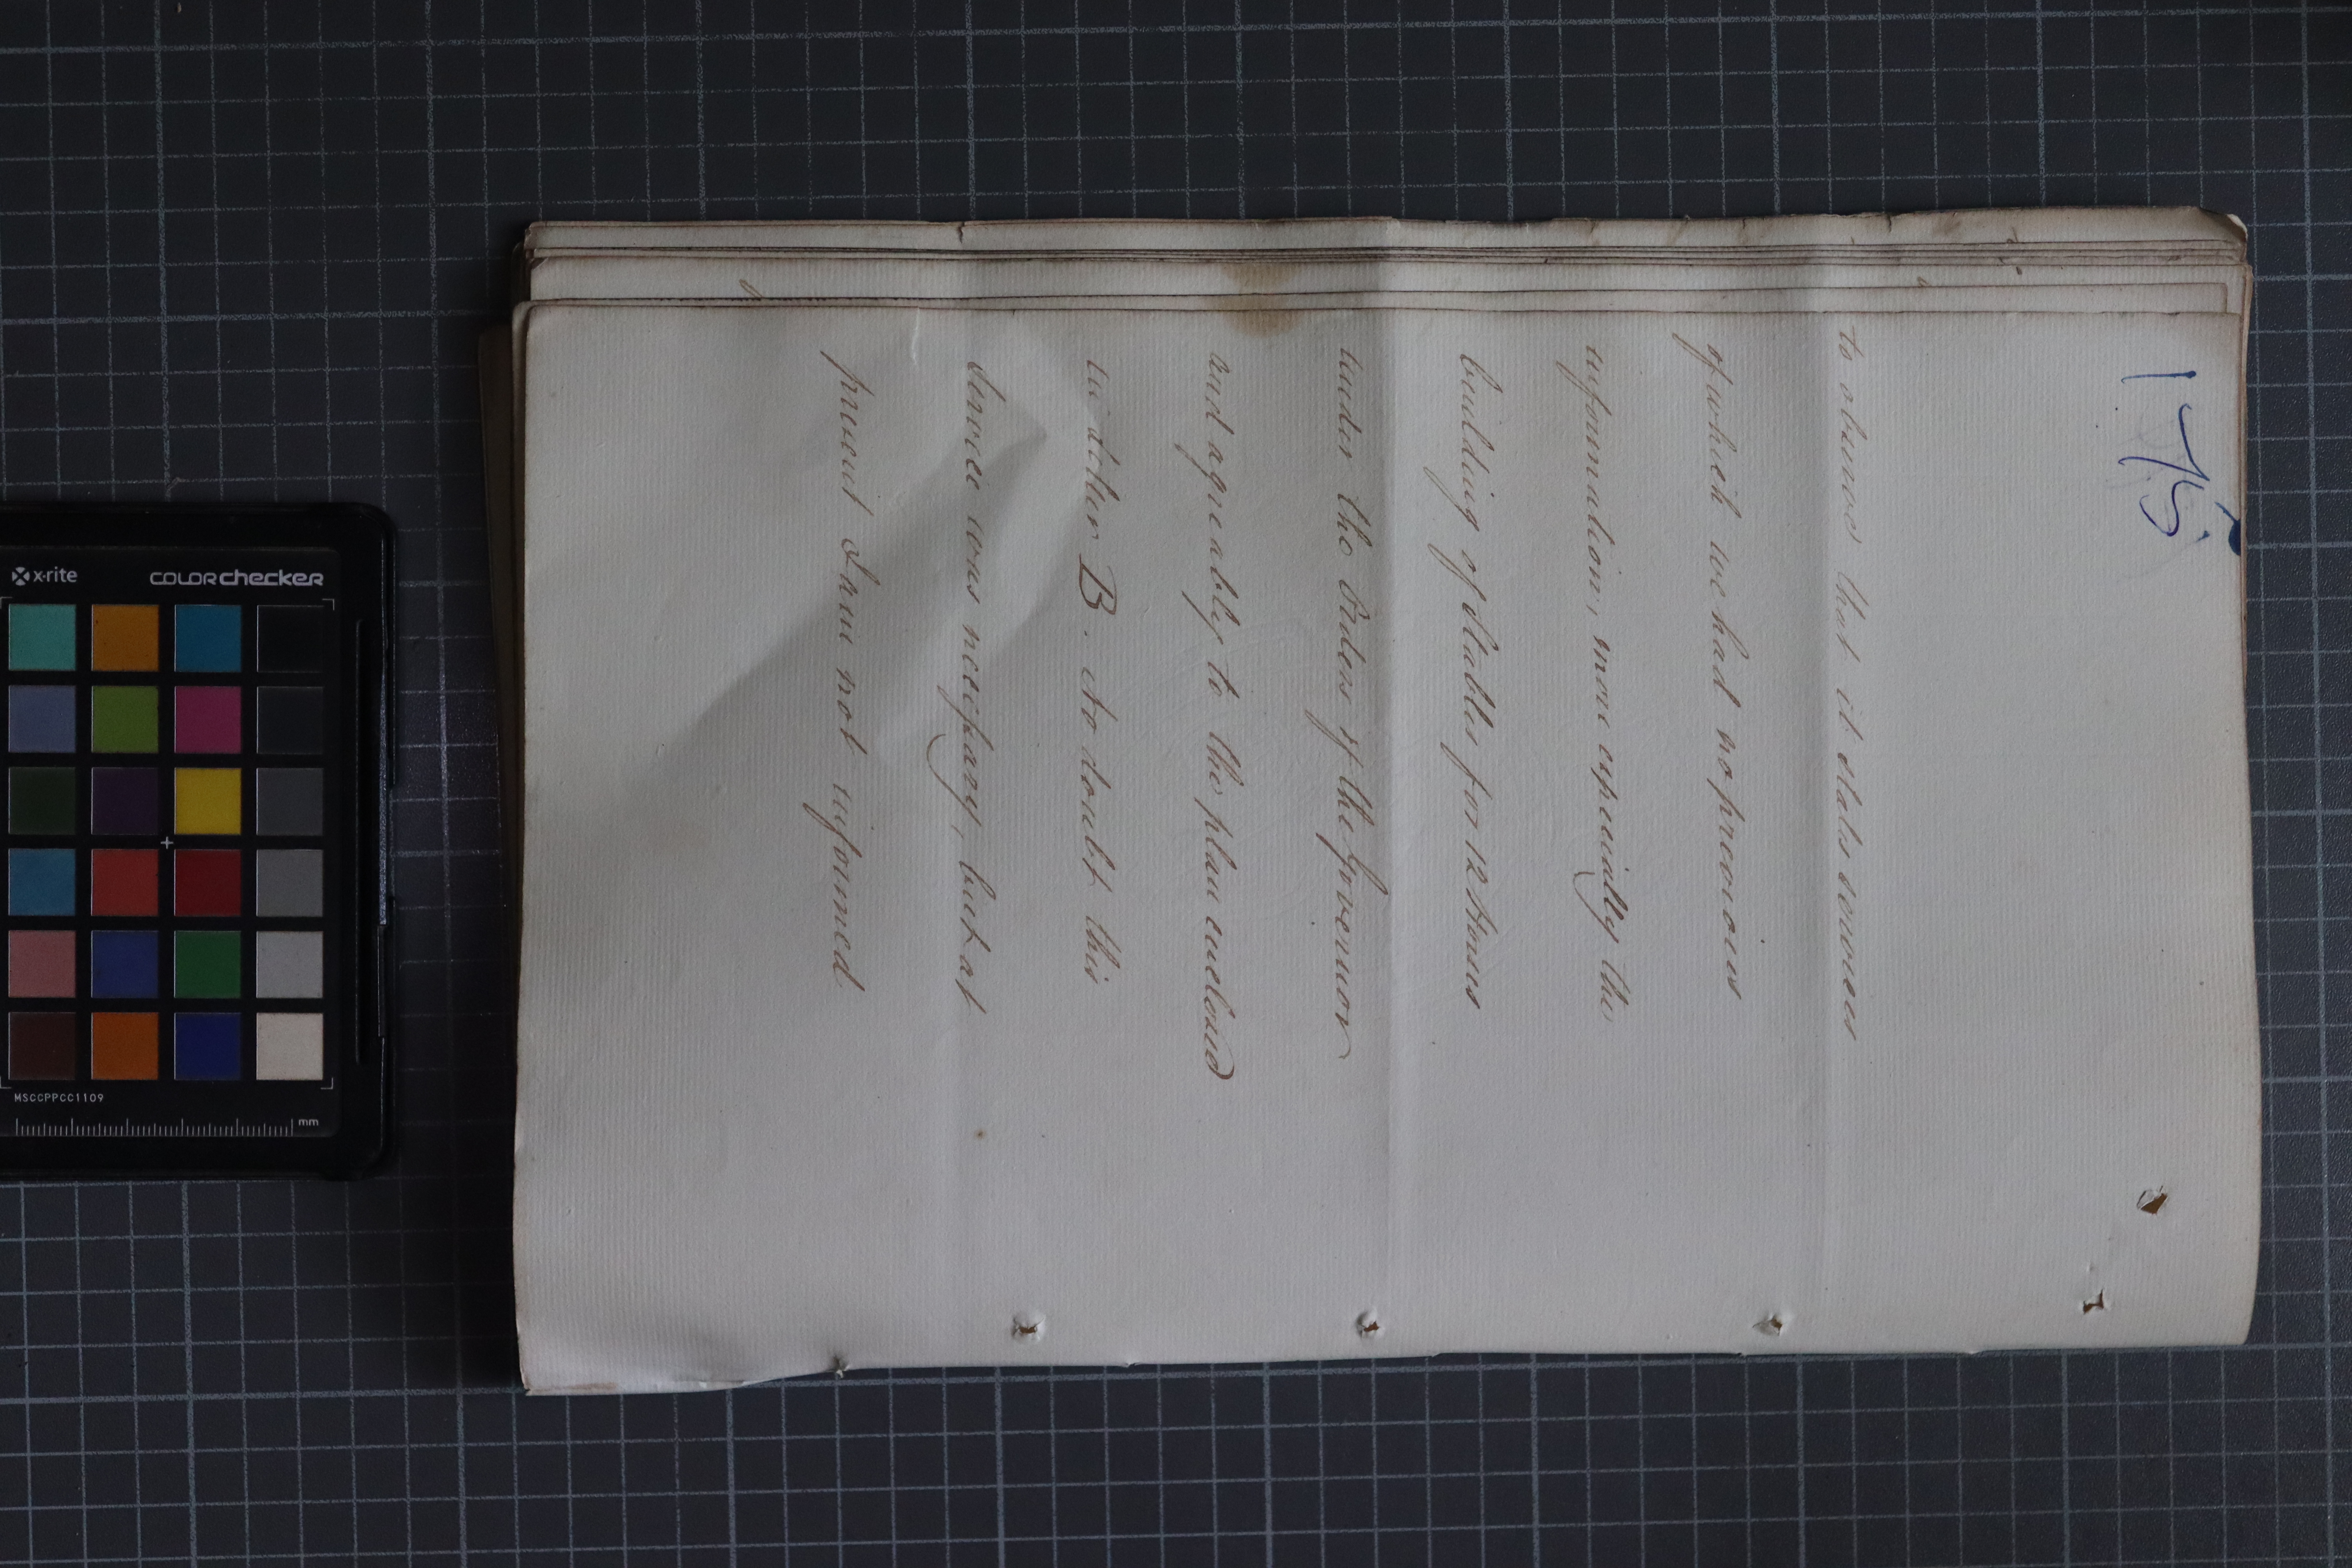 175
to observe that it states services
of which we had no previous
information, more especially the
building of Stables for 12 Horses
under the Orders of the Governor
and agreeably to the plan enclosed
in letter B. No doubt this
Service was necessary, but at
present I am not informed
x-rite
colorchecker
MSCCPPCC1109
mm